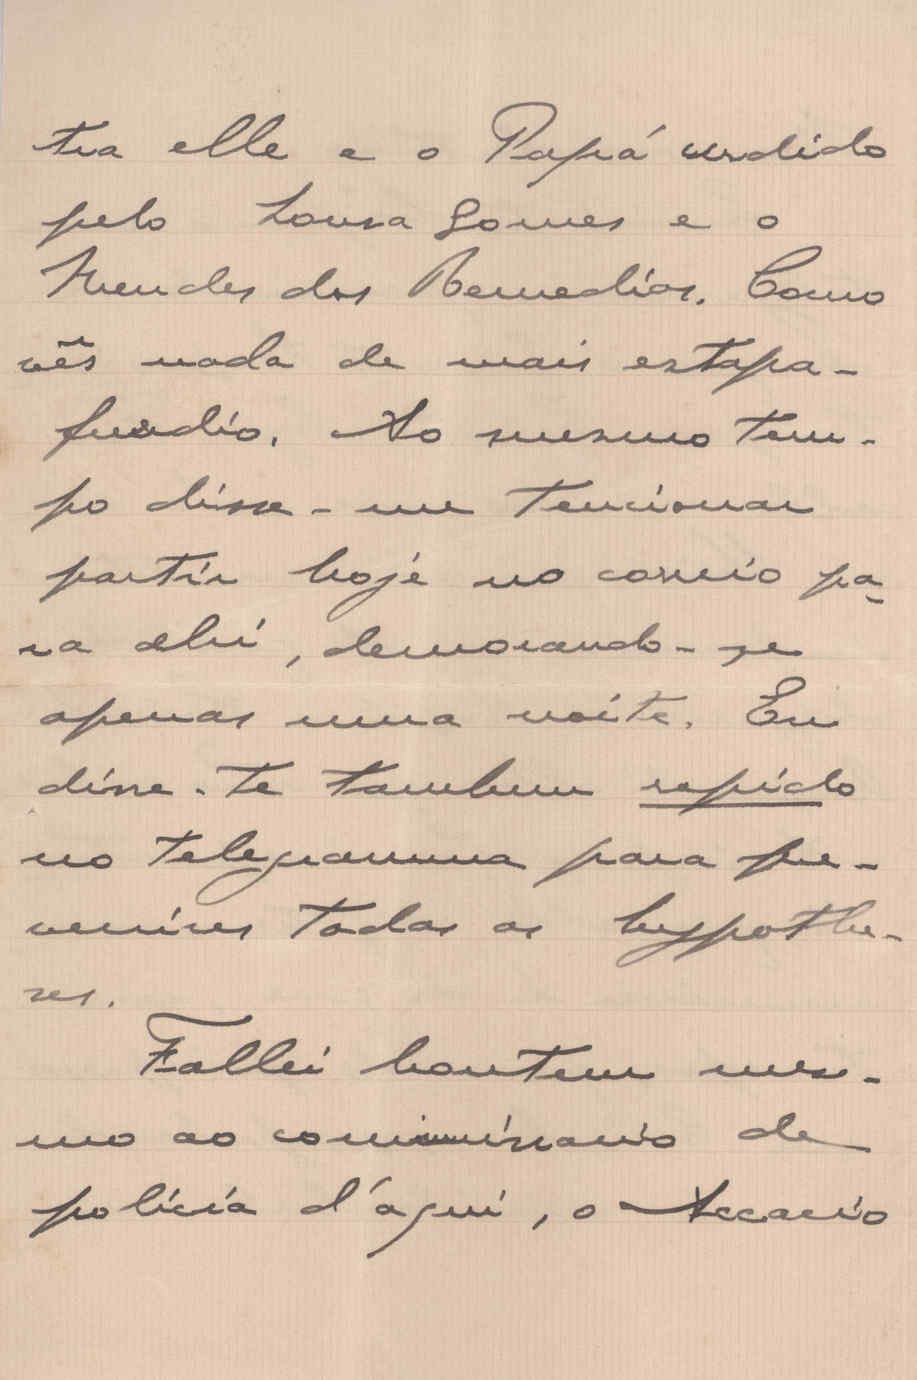 tra elle e o Papá urdido
pelo Sousa Gomes e o
Mendes dos Remedios. Como
vês nada de mais estapa-
furdio. Ao mesmo tem-
po disse-me tencionar
partir hoje no correio pa-
ra ahi, demorando-se
apenas uma noite. Eu
disse-te tambem rapido
no telegramma para pre-
venires todas as hypothe-
ses.
Fallei hontem mes-
mo ao commissario de
policia d'aqui, o Accacio